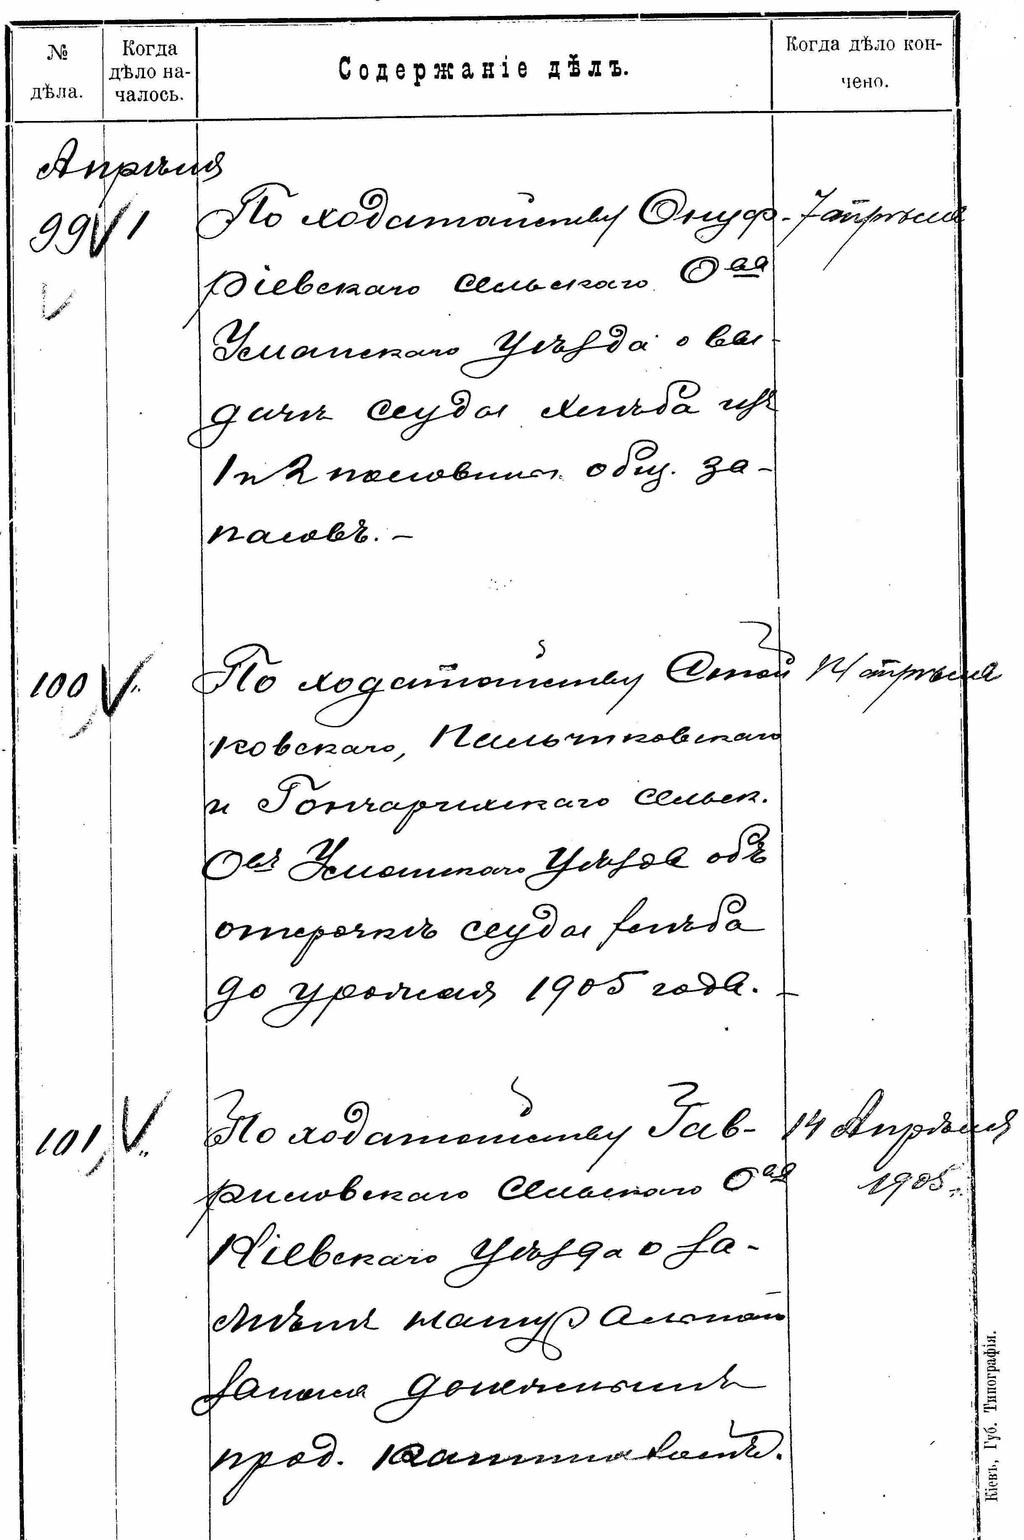 № дѣла.
Когда дѣло на-
чалось.
Содержаніе дѣлъ.
Когда дѣло кон-
чено.
Апрѣля
99 1 По ходатайству Онуф- 7 апрѣля
ріевскаго сельскаго О-ва
Уманскаго уѣзда о вы-
дачѣ ссуды хлѣба изъ
1 и 2 половины общ. за-
пасовъ. —
100 " По ходатайству 14 апрѣля
ковскаго, Пальчиковскаго
и Гончарихскаго сельск.
О-въ Уманскаго уѣзда объ
отсрочкѣ ссуды хлѣба
до урожая 1905 года. —
101 " По ходатайству Гав- 14 Апрѣля
риловскаго сельскаго О-ва 1905
Кіевскаго уѣзда о за-
мѣнѣ натуральной
запаса денежнымъ
прод. капиталомъ.
Кіевъ, Губ. Типографія.